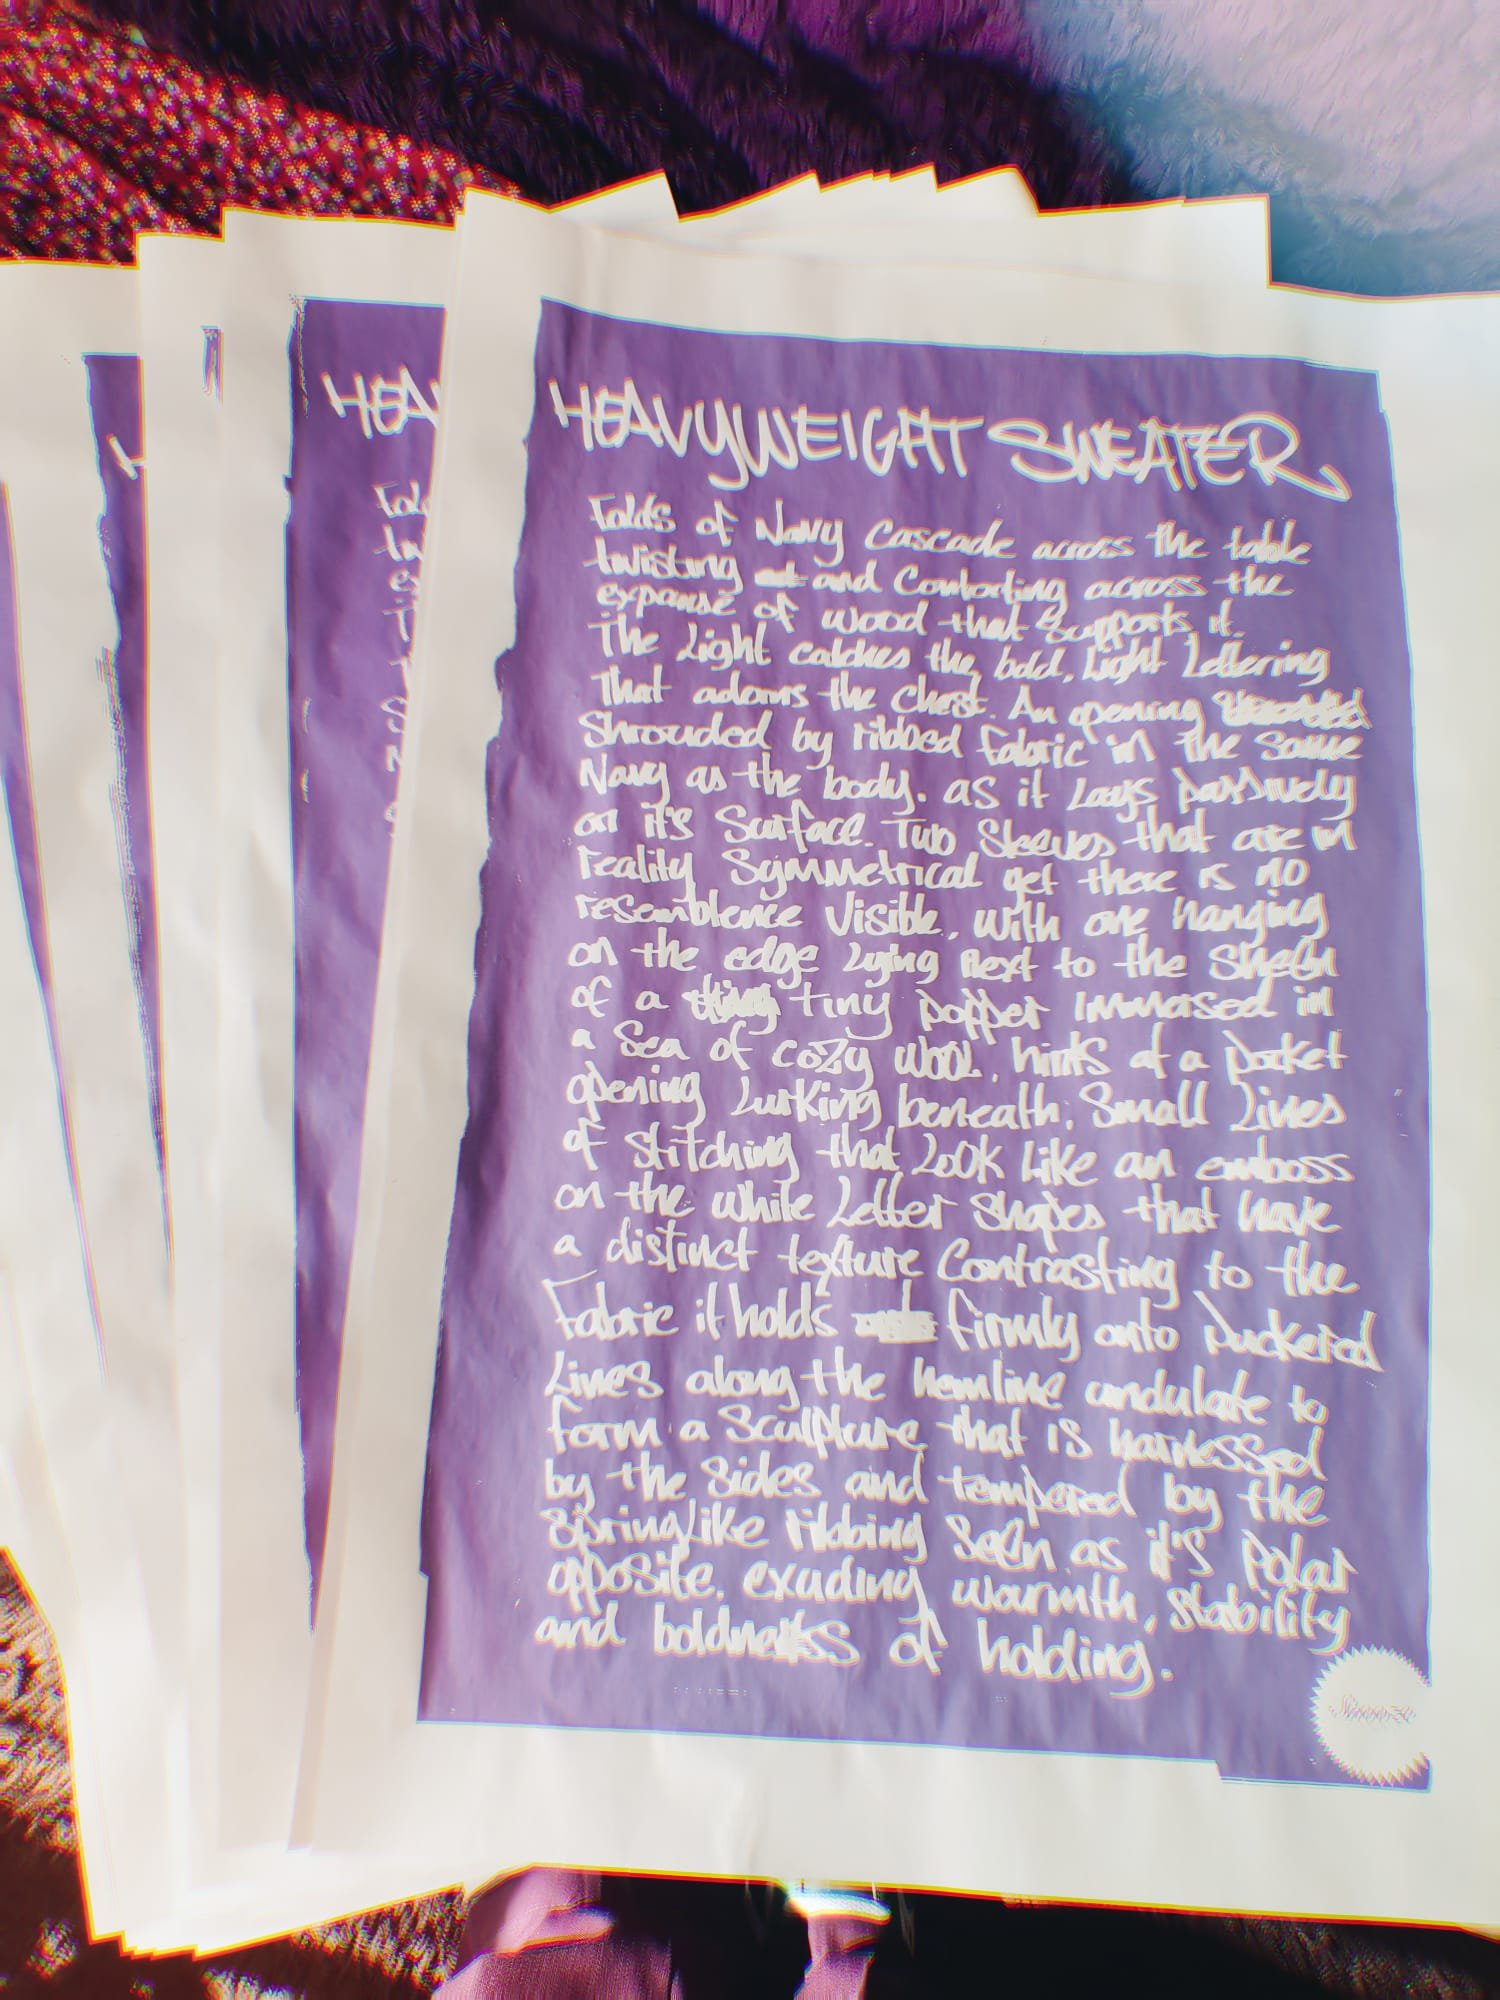 HEAVYWEIGHT SWEATER
Folds of Navy Cascade across the table
twisting and Contorting across the
expanse of wood that supports it.
The Light catches the bold, Light Lettering
That adorns the chest. An opening
Shrouded by ribbed fabric in the same
Navy as the body. as it Lays passively
on it's Surface. Two Sleeves that are in
reality Symmetrical yet there is no
resemblence Visible, with one hanging
on the edge Lying next to the Sheen
of a tiny popper immersed in
a Sea of cozy wool. hints at a pocket
opening Lurking beneath. Small Lines
of stitching that Look Like an emboss
on the white Letter Shapes that have
a distinct texture Contrasting to the
Fabric it holds firmly onto Puckered
Lines along the hemline undulate to
form a Sculpture that is harnessed
by the Sides and tempered by the
Springlike ribbing Seen as it's Polar
opposite. exuding warmth, Stability
and boldness of holding.
HEA
Fold
tw
ex
T
S
N
H